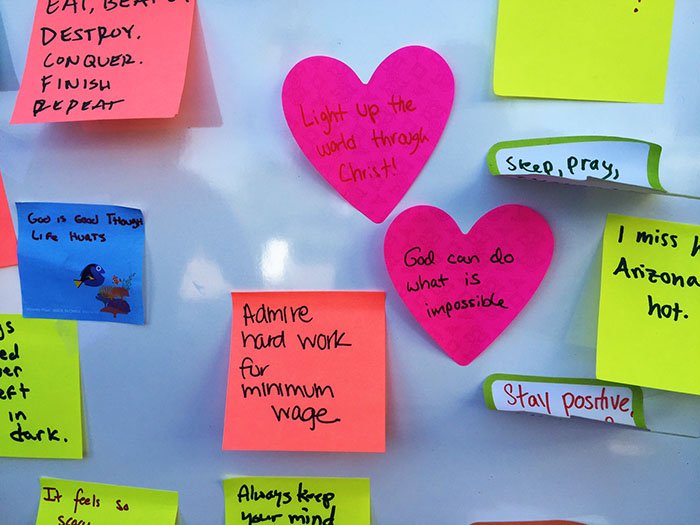 EAT, BEAT
DESTROY.
CONQUER.
FINISH
REPEAT
Light up the
world through
Christ!
Sleep, pray,
God is Good Though
Life Hurts
God can do
what is
impossible
I miss
Arizona
hot.
Admire
hard work
for
minimum
wage.
Stay positive
in
dark.
It feels so
Always keep
your mind